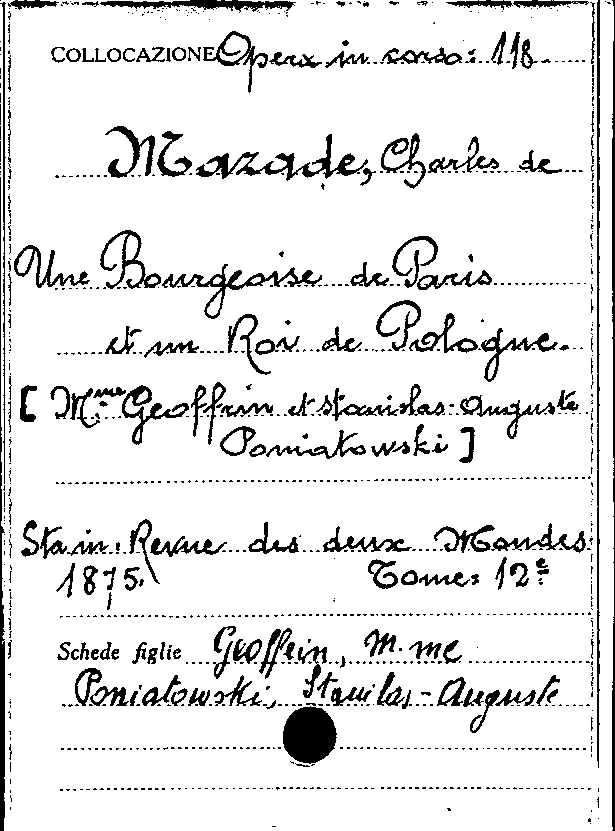 COLLOCAZIONE Opera in corso: 118.
Mazade, Charles de
Une Bourgeoise de Paris
et un Roi de Pologne.
[ Mme Geoffrin et Stanislas-Auguste
Poniatowski ]
Sta in: Revue des deux Mondes
1875. Tome: 12e
Schede figlie Geoffrin, M.me
Poniatowski, Stanilas-Auguste